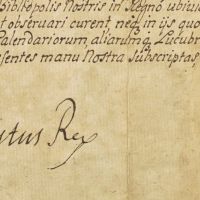 bibliopolis Nostris in Regno ubiuis
t observari curent, neq in ijs quo
Calendariorum, aliarumq Lucubr
esentes manu Nostra Subscriptas,
stus Rex